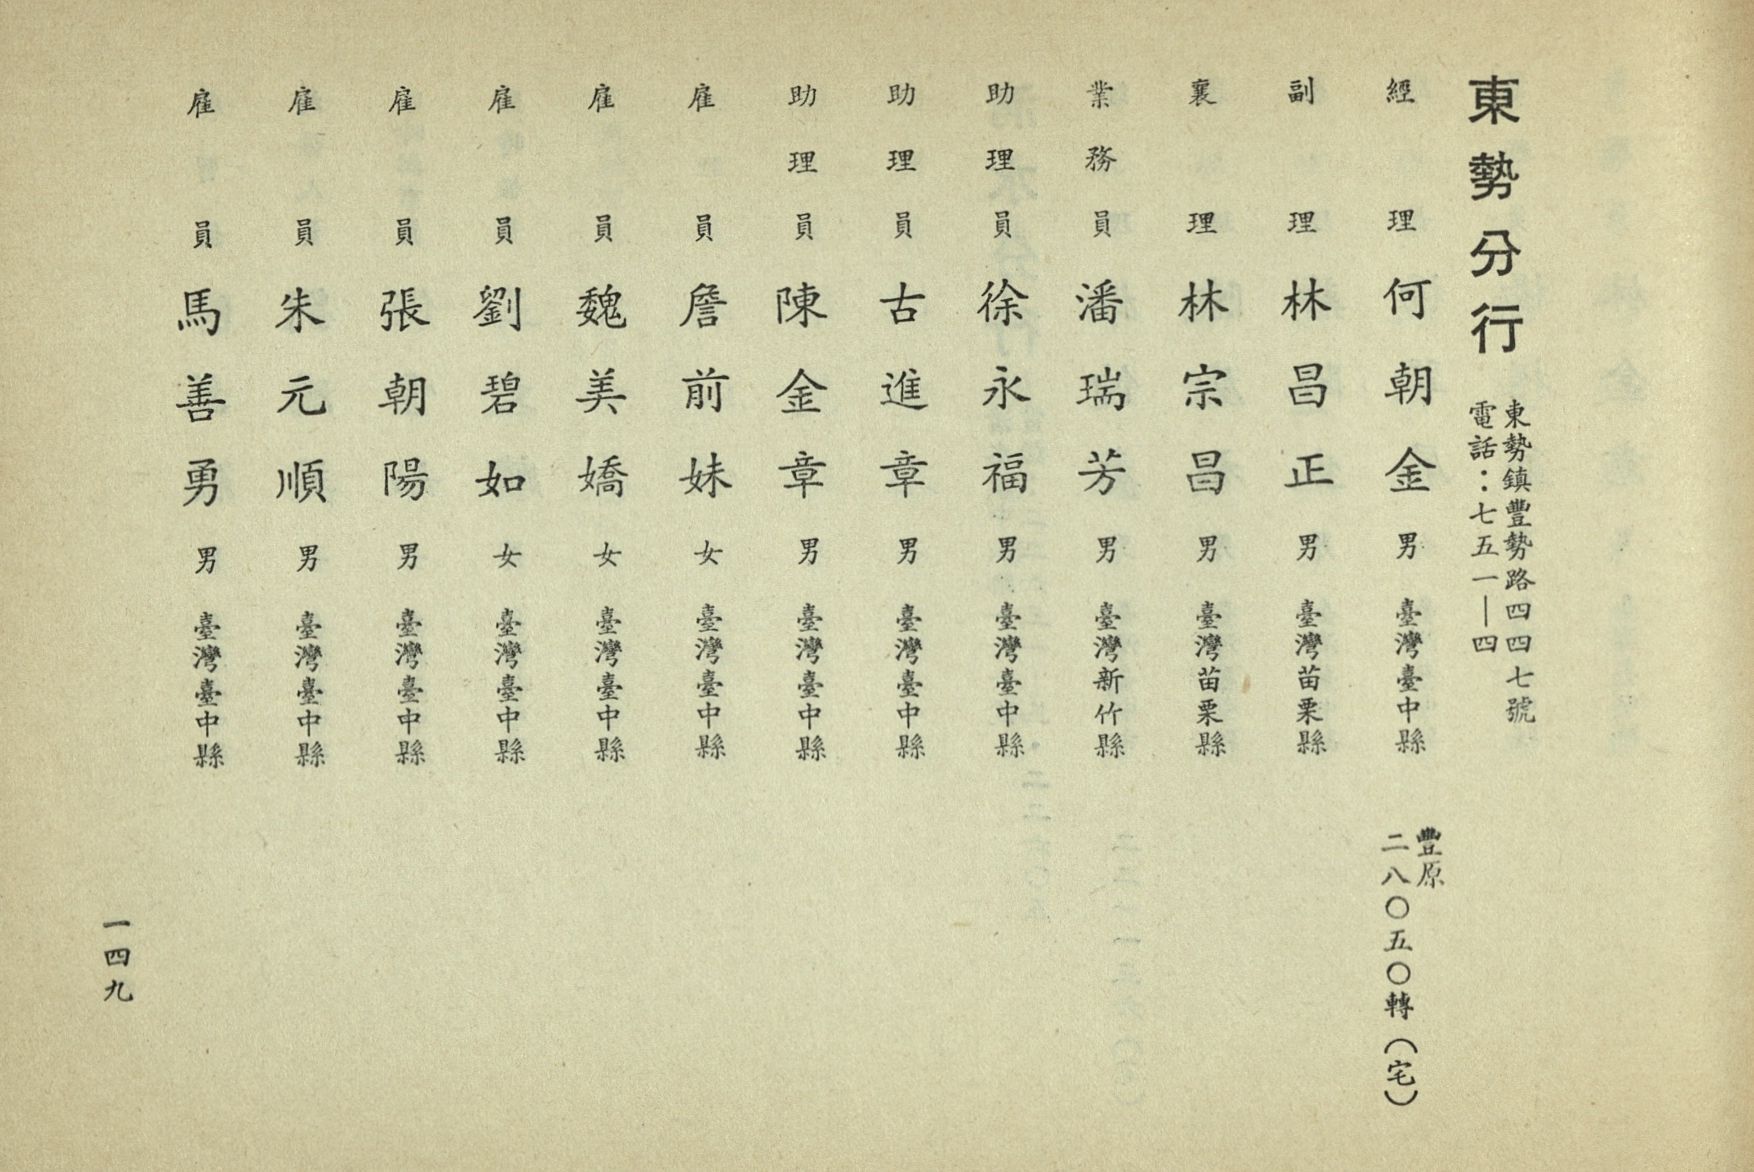 東勢分行
東勢鎮豐勢路四四七號
電話：七五一—四
經理 何朝金 男 臺灣臺中縣 豐原
二八〇五〇轉（宅）
副理 林昌正 男 臺灣苗栗縣
襄理 林宗昌 男 臺灣苗栗縣
業務員 潘瑞芳 男 臺灣新竹縣
助理員 徐永福 男 臺灣臺中縣
助理員 古進章 男 臺灣臺中縣
助理員 陳金章 男 臺灣臺中縣
雇員 詹前妹 女 臺灣臺中縣
雇員 魏美嬌 女 臺灣臺中縣
雇員 劉碧如 女 臺灣臺中縣
雇員 張朝陽 男 臺灣臺中縣
雇員 朱元順 男 臺灣臺中縣
雇員 馬善勇 男 臺灣臺中縣
一四九